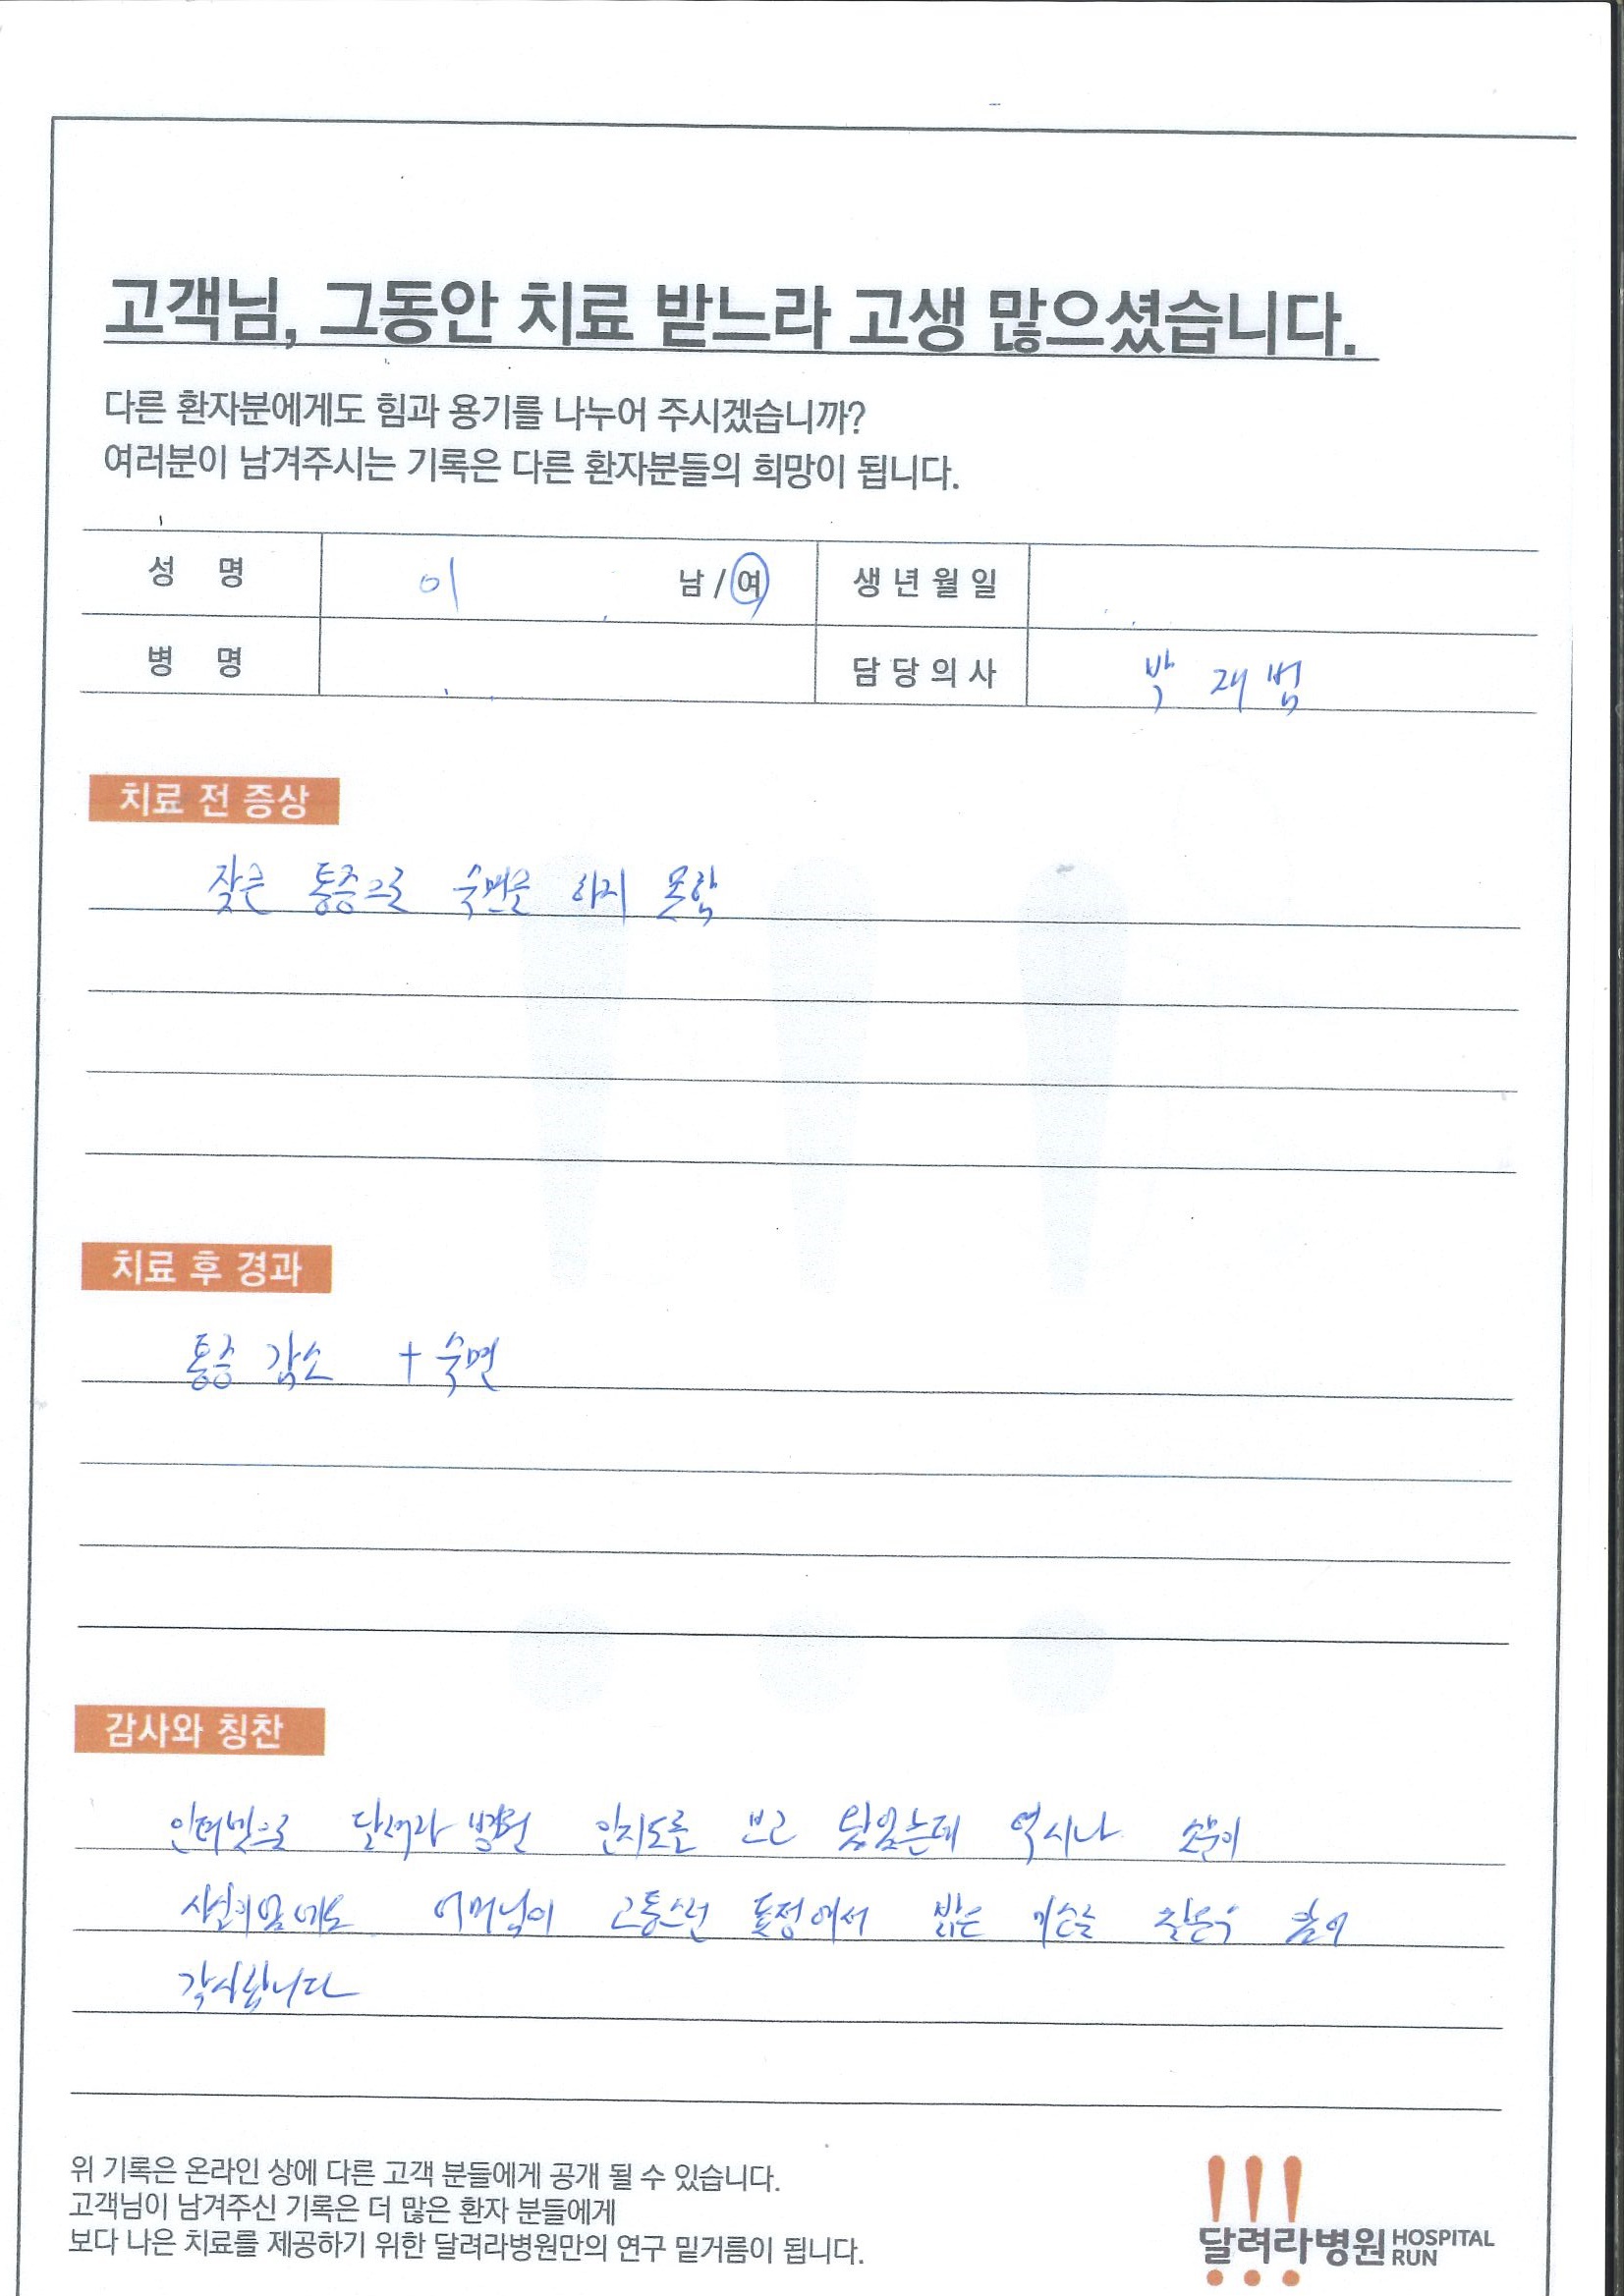 고객님, 그동안 치료 받느라 고생 많으셨습니다.
다른 환자분에게도 힘과 용기를 나누어 주시겠습니까?
여러분이 남겨주시는 기록은 다른 환자분들의 희망이 됩니다.
성 명 이 남 / 여 생년월일
병 명 담당의사 박재범
치료 전 증상
잦은 통증으로 숙면을 하지 못함
치료 후 경과
통증 감소 + 숙면
감사와 칭찬
인터넷으로 달려라병원 인지도를 보고 왔었는데 역시나 소문이
어머님이 고통스런 표정에서 밝은 미소를
감사합니다
위 기록은 온라인 상에 다른 고객 분들에게 공개 될 수 있습니다.
고객님이 남겨주신 기록은 더 많은 환자 분들에게
보다 나은 치료를 제공하기 위한 달려라병원만의 연구 밑거름이 됩니다.
달려라병원 HOSPITAL RUN